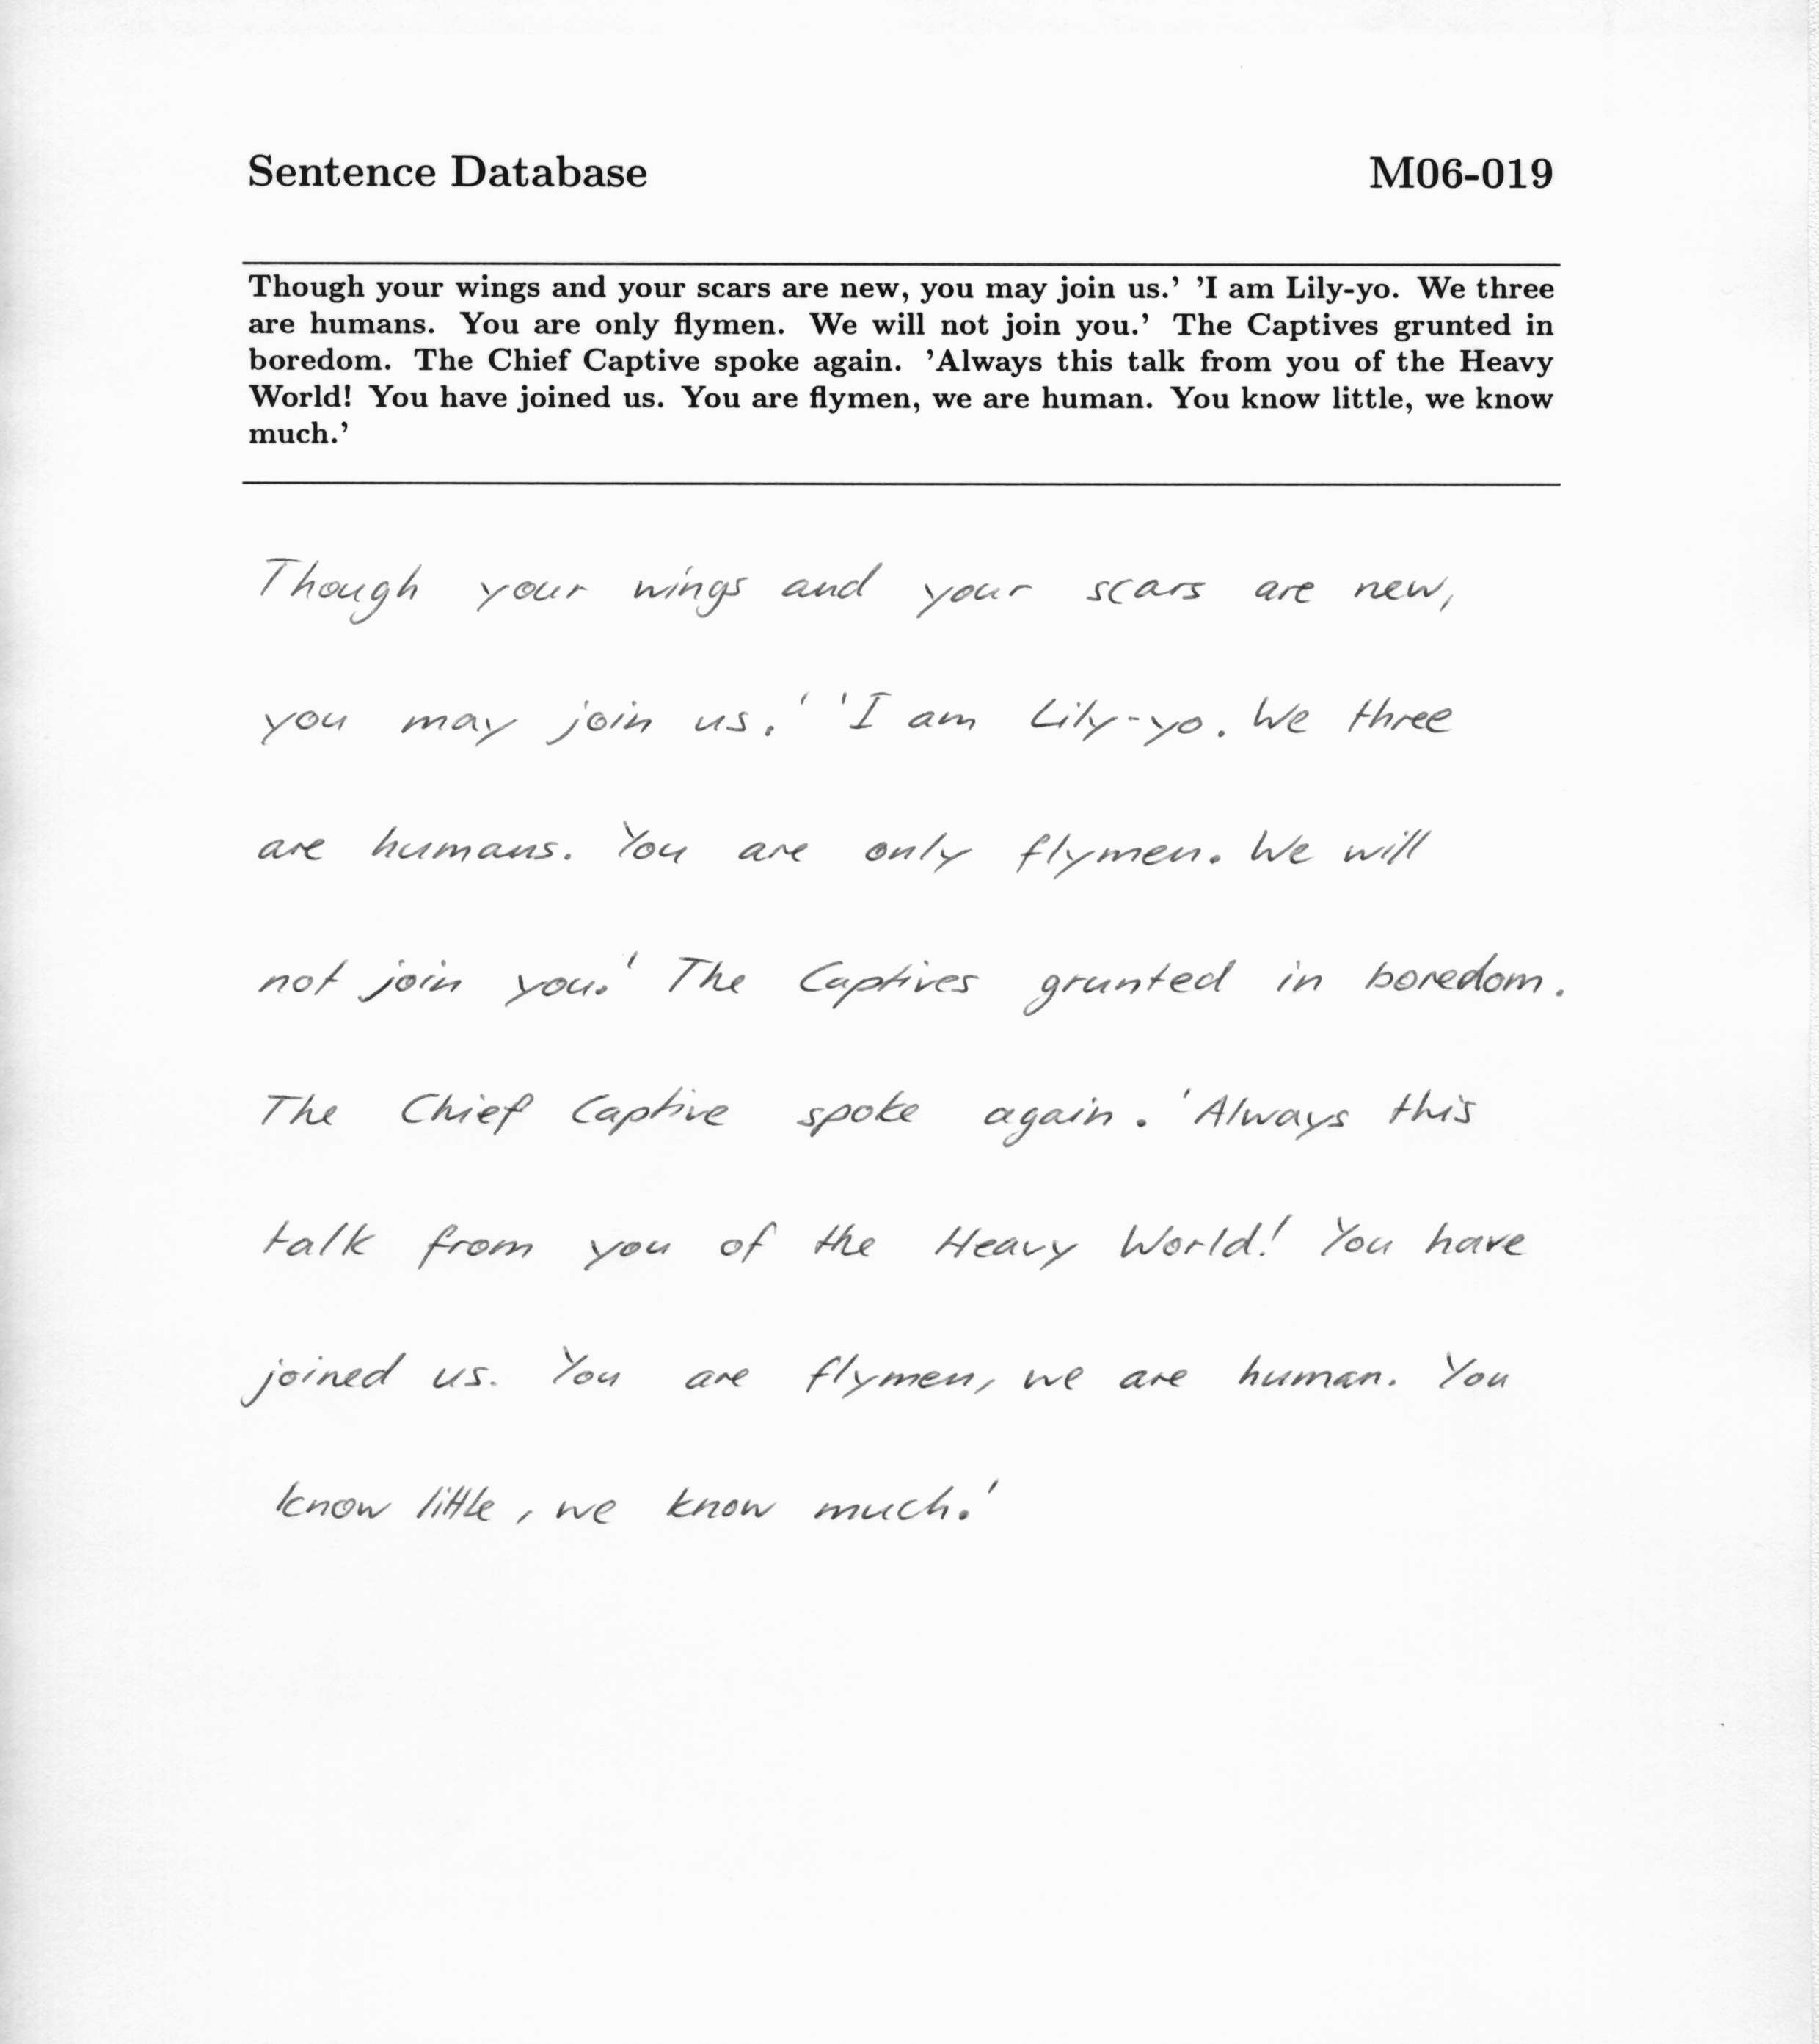 Sentence Database M06-019
Though your wings and your scars are new, you may join us.’ ’I am Lily-yo. We three
are humans. You are only flymen. We will not join you.’ The Captives grunted in
boredom. The Chief Captive spoke again. ’Always this talk from you of the Heavy
World! You have joined us. You are flymen, we are human. You know little, we know
much.’
Though your wings and your scars are new,
you may join us.' 'I am Lily-yo. We three
are humans. You are only flymen. We will
not join you.' The Captives grunted in boredom.
The Chief Captive spoke again. 'Always this
talk from you of the Heavy World! You have
joined us. You are flymen, we are human. You
know little, we know much.'